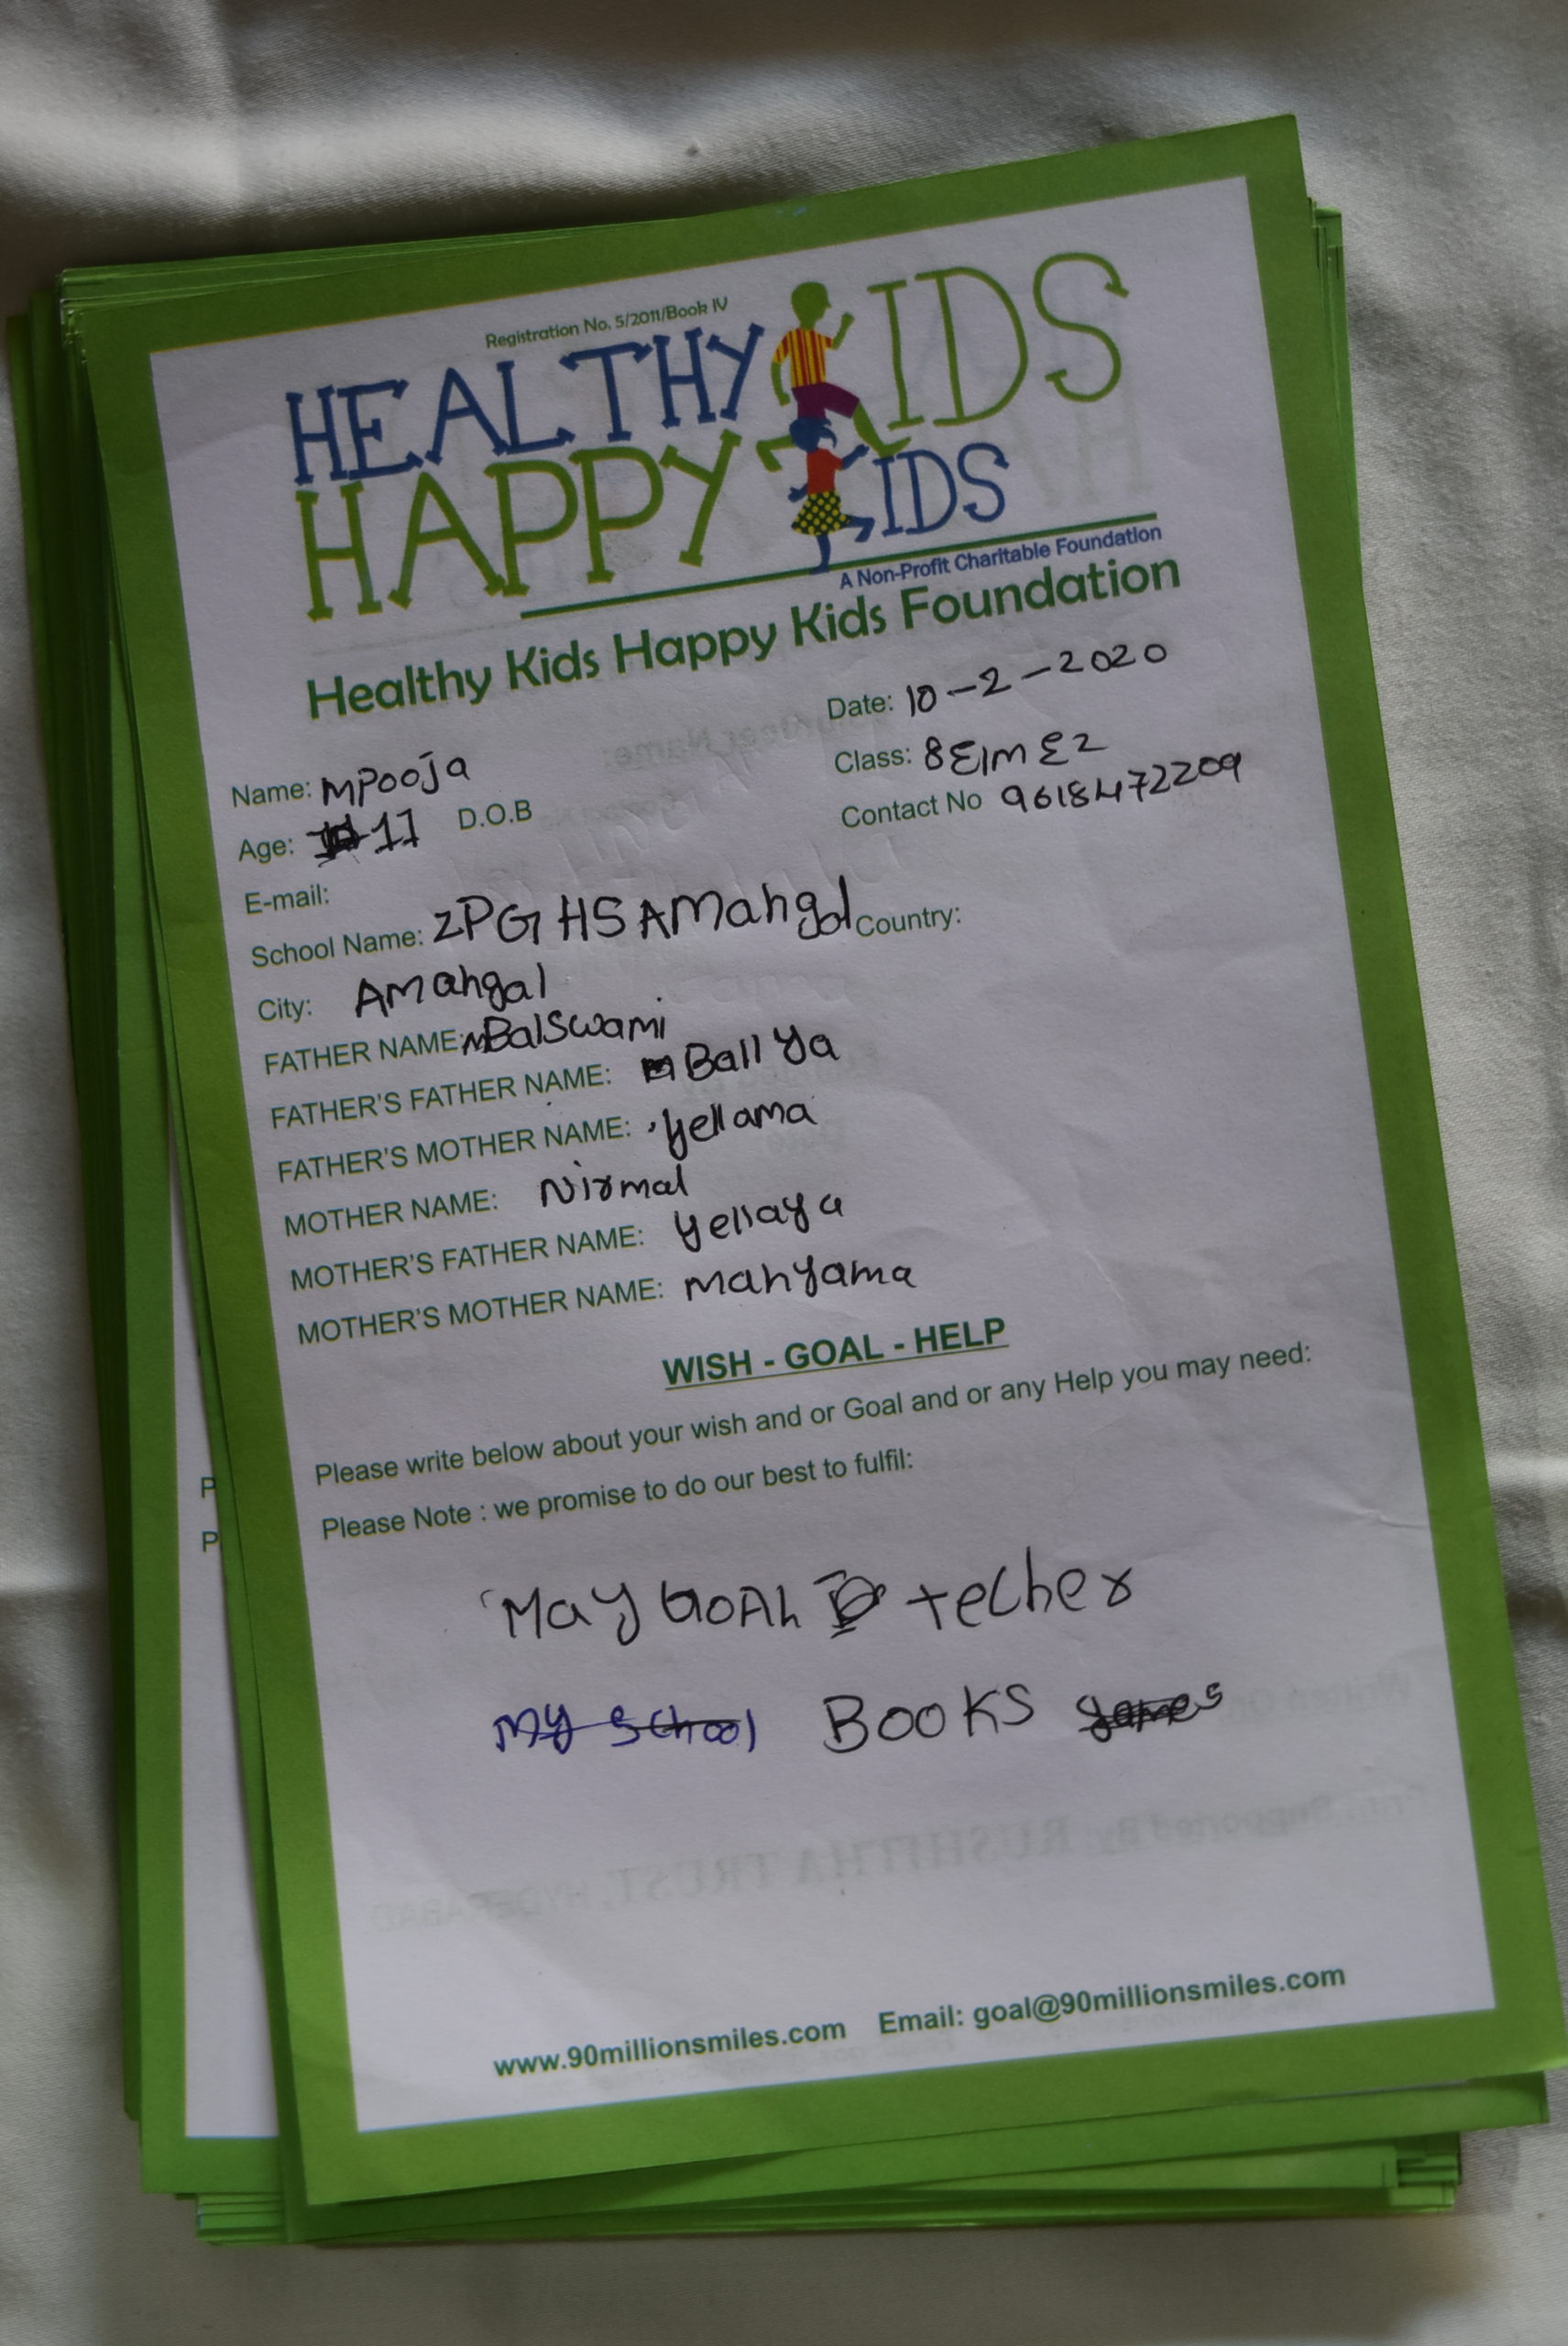 Registration No. 5/2011/Book IV
HEALTHY KIDS
HAPPY KIDS
A Non-Profit Charitable Foundation
Healthy Kids Happy Kids Foundation
Date: 10-2-2020
Name: MPooja
Class: 8EIM E2
Age: 11 D.O.B
Contact No 9618472209
E-mail:
School Name: ZPG HS AMahgal Country:
City: AMahgal
FATHER NAME: MBalSwami
FATHER'S FATHER NAME: M Ball Ya
FATHER'S MOTHER NAME: Yellama
MOTHER NAME: Nirmal
MOTHER'S FATHER NAME: Yellaya
MOTHER'S MOTHER NAME: Mahyama
WISH - GOAL - HELP
Please write below about your wish and or Goal and or any Help you may need:
Please Note : we promise to do our best to fulfil:
May GOAL techer
My School BOOKS games
www.90millionsmiles.com Email: goal@90millionsmiles.com
P
P